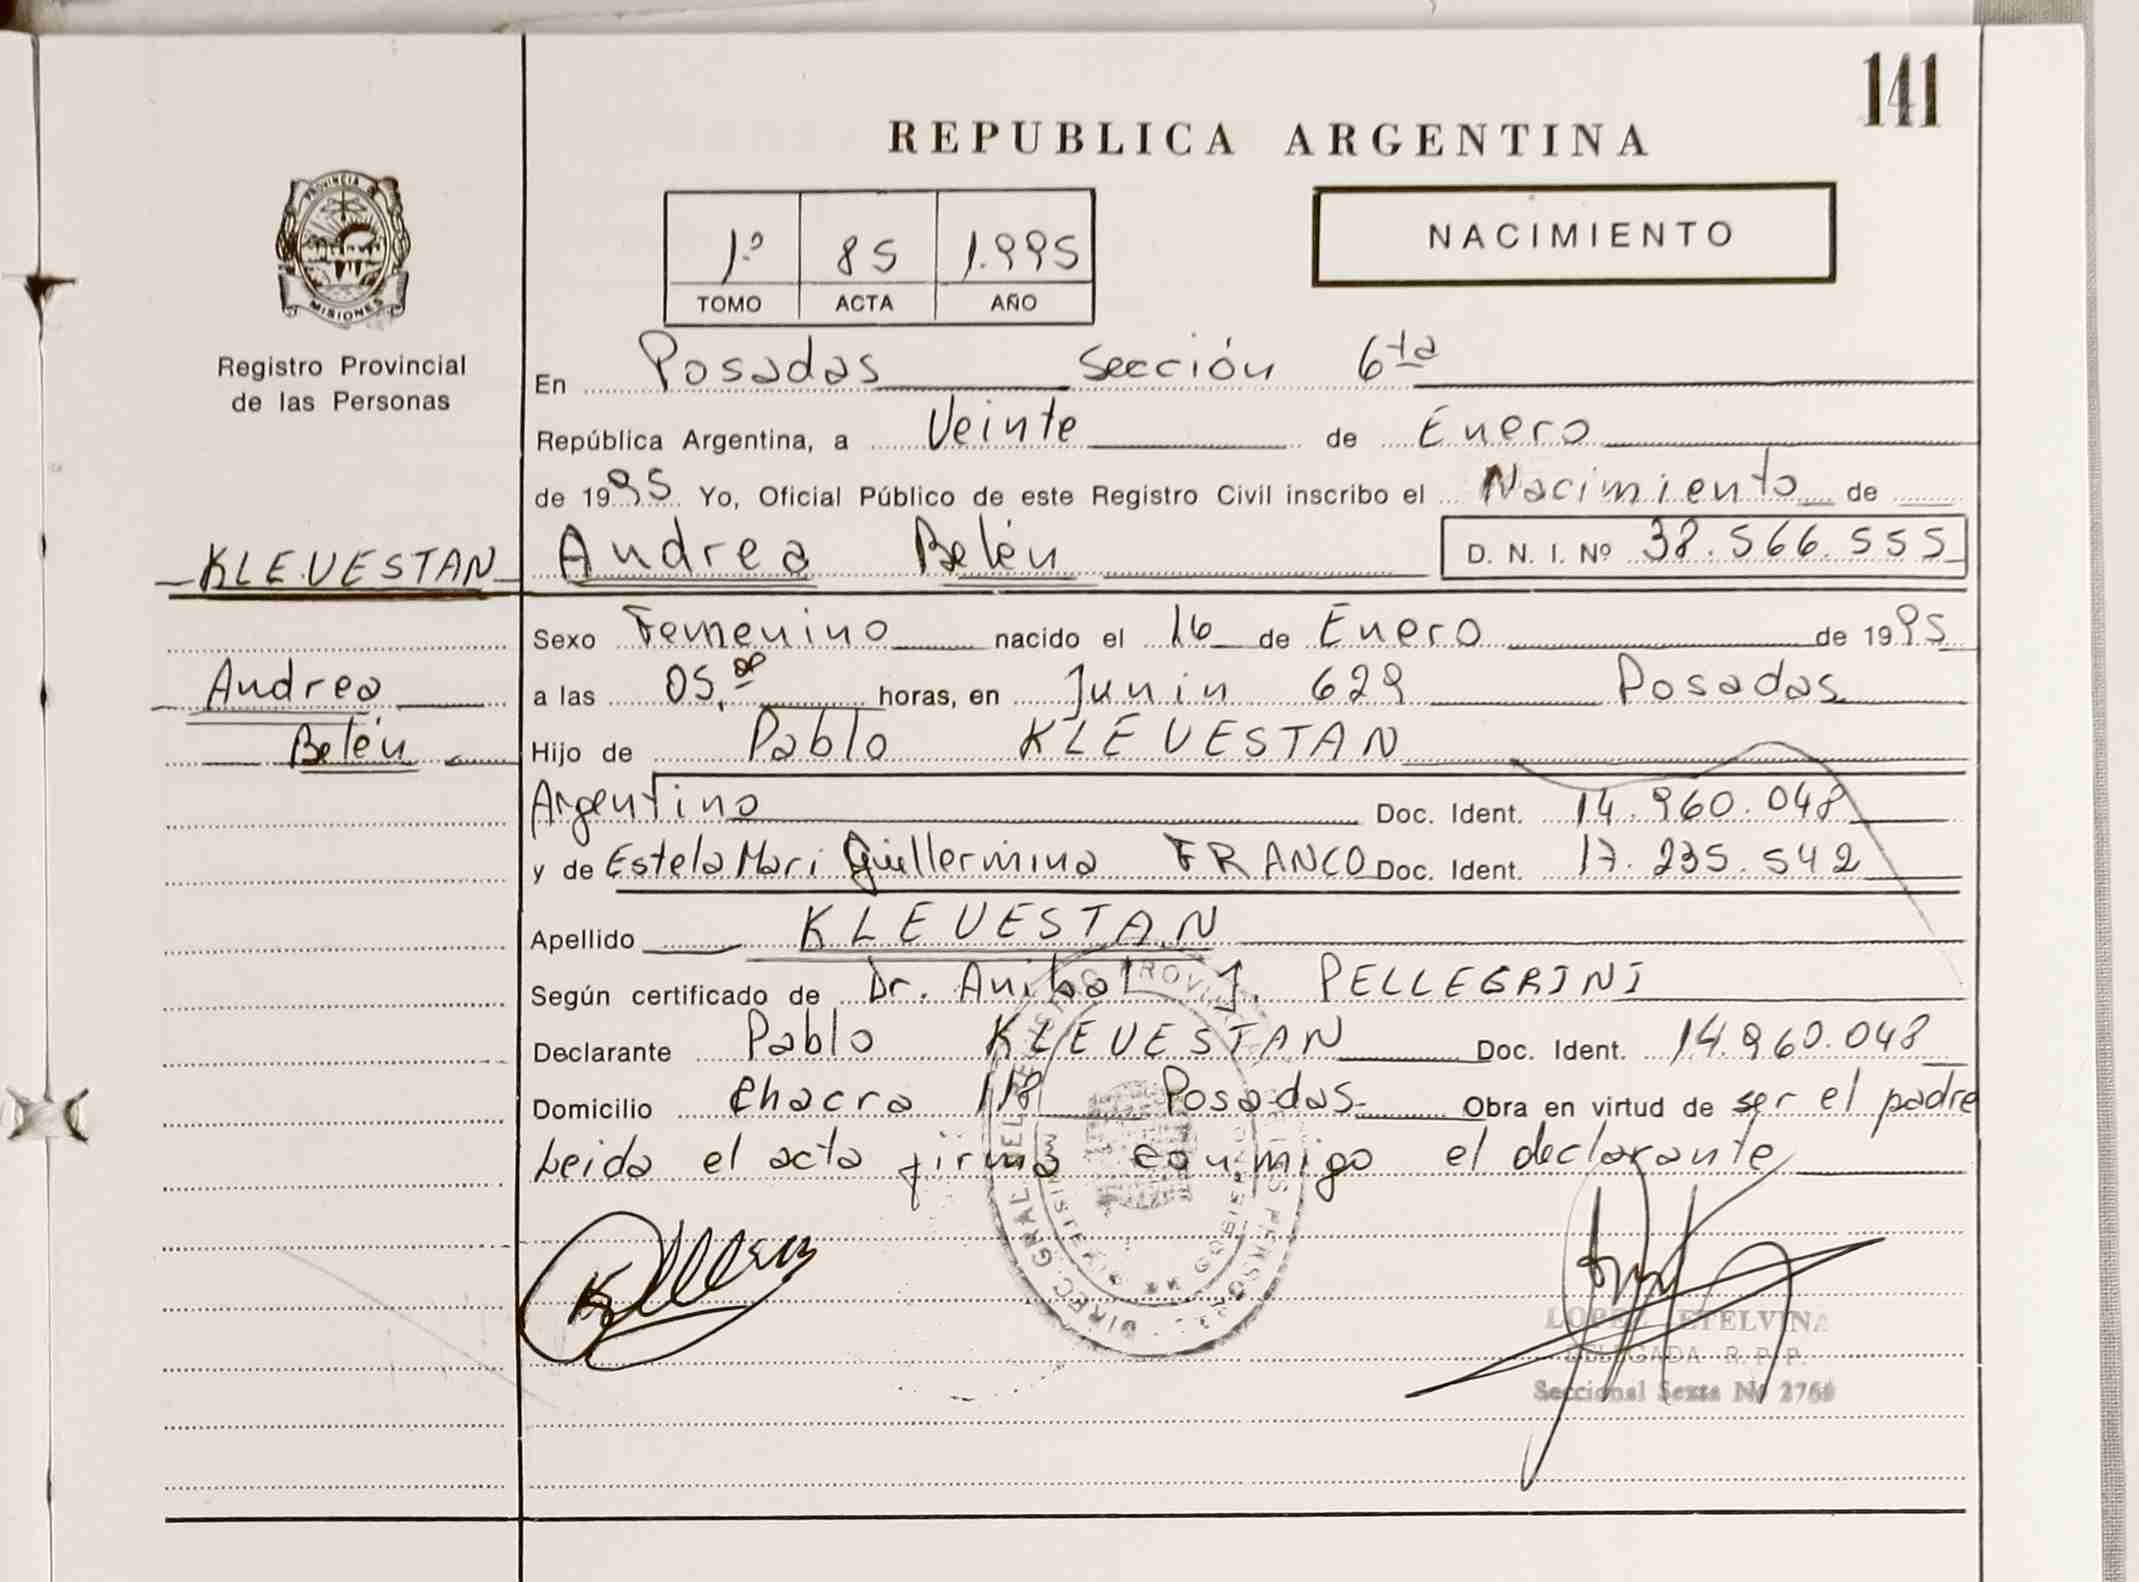 141
REPUBLICA ARGENTINA
NACIMIENTO
1º 85 1.995
TOMO ACTA AÑO
PROVINCIA DE
MISIONES
Registro Provincial
de las Personas
En Posadas Sección 6ta
República Argentina, a Veinte de Enero
de 1995 Yo, Oficial Público de este Registro Civil inscribo el Nacimiento de
KLEVESTAN Andrea Belén D. N. I. Nº 38.566.555
Sexo Femenino nacido el 16 de Enero de 1995
Andrea a las 05,00 horas, en Junin 629 Posadas
Belén Hijo de Pablo KLEVESTAN
Argentino Doc. Ident. 14.960.048
y de Estela Mari Guillermina FRANCO Doc. Ident. 17.235.542
Apellido KLEVESTAN
Según certificado de Dr. Anibal J. PELLEGRINI
Declarante Pablo KLEVESTAN Doc. Ident. 14.960.048
Domicilio Chacra 118 Posadas Obra en virtud de ser el padre
Leida el acta firma conmigo el declarante
DIREC. GRAL DEL REGISTRO PROVINCIAL DE LAS PERSONAS
MISIONES
LOPEZ ETELVINA
DELEGADA R. P. P.
Seccional Sexta Nº